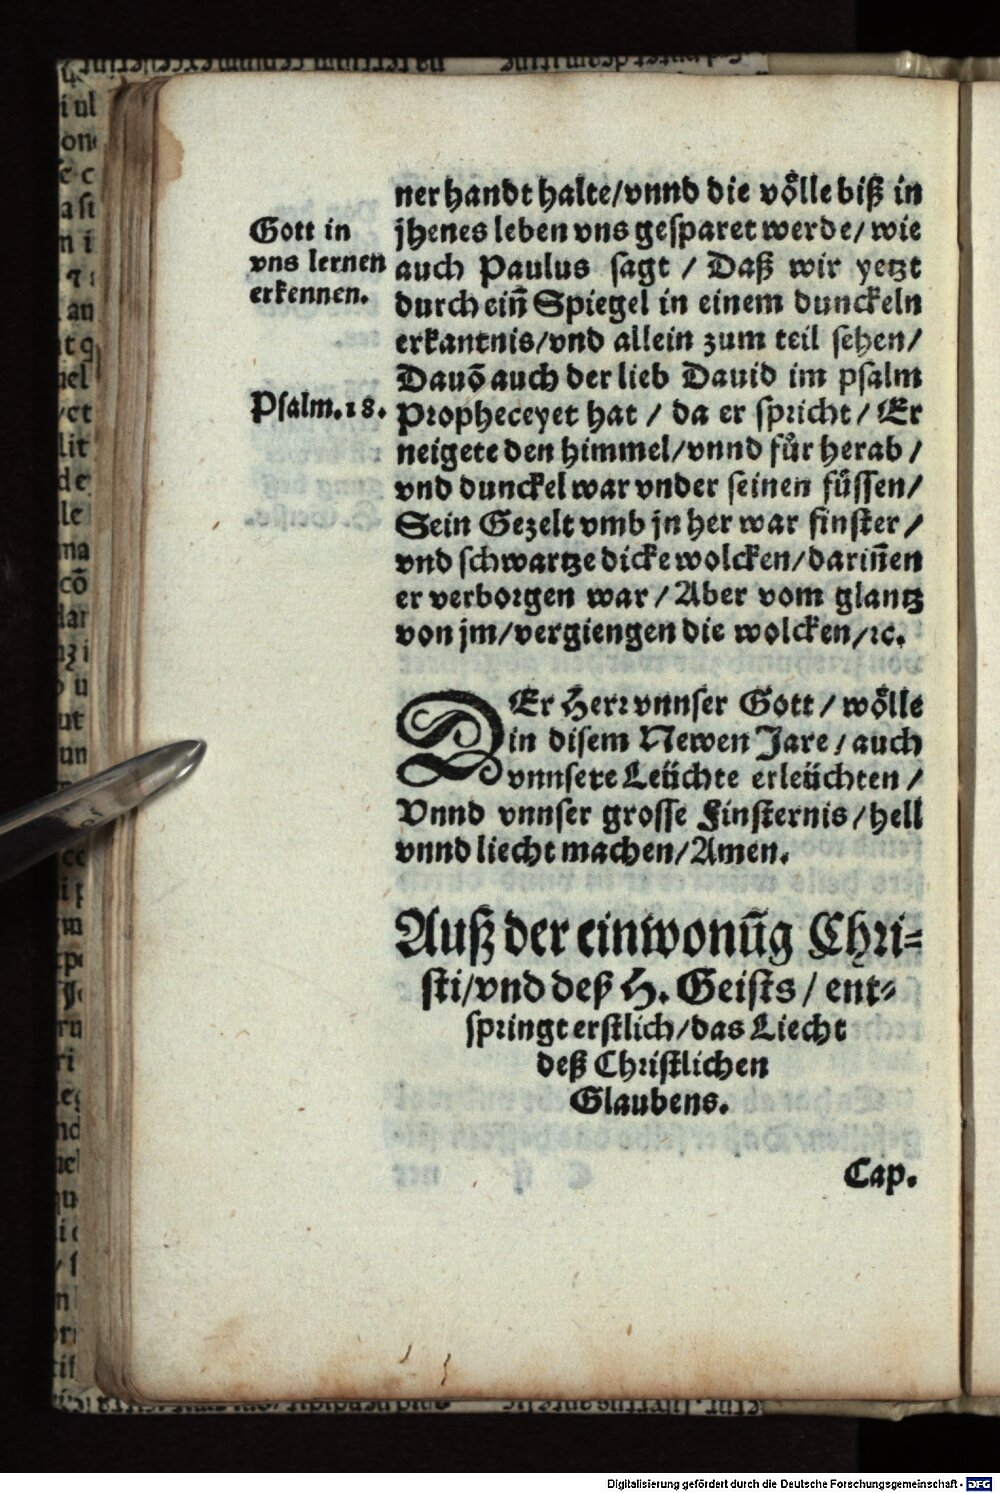 ner handt halte/vnnd die vo̊lle biß in
Gott in
vns lernen
erkennen.
jhenes leben vns gesparet werde/wie
auch Paulus sagt / Daß wir yetzt
durch ein̄ Spiegel in einem dunckeln
erkantnis/vnd allein zum teil sehen/
Dauō auch der lieb Dauid im psalm
Psalm.18.
Propheceyet hat / da er spricht / Er
neigete den himmel/vnnd fůr herab /
vnd dunckel war vnder seinen füssen/
Sein Gezelt vmb jn her war finster /
vnd schwartze dicke wolcken/darin̄en
er verborgen war / Aber vom glantz
von jm/vergiengen die wolcken/ꝛc.
DEr Herr vnnser Gott / wo̊lle
in disem Newen Jare / auch
vnnsere Leüchte erleüchten /
Vnnd vnnser grosse Finsternis/hell
vnnd liecht machen/Amen.
Auß der einwonūg Chri-
sti/vnd deß H. Geists / ent-
springt erstlich/das Liecht
deß Christlichen
Glaubens.
Cap.
Digitalisierung gefördert durch die Deutsche Forschungsgemeinschaft - DFG